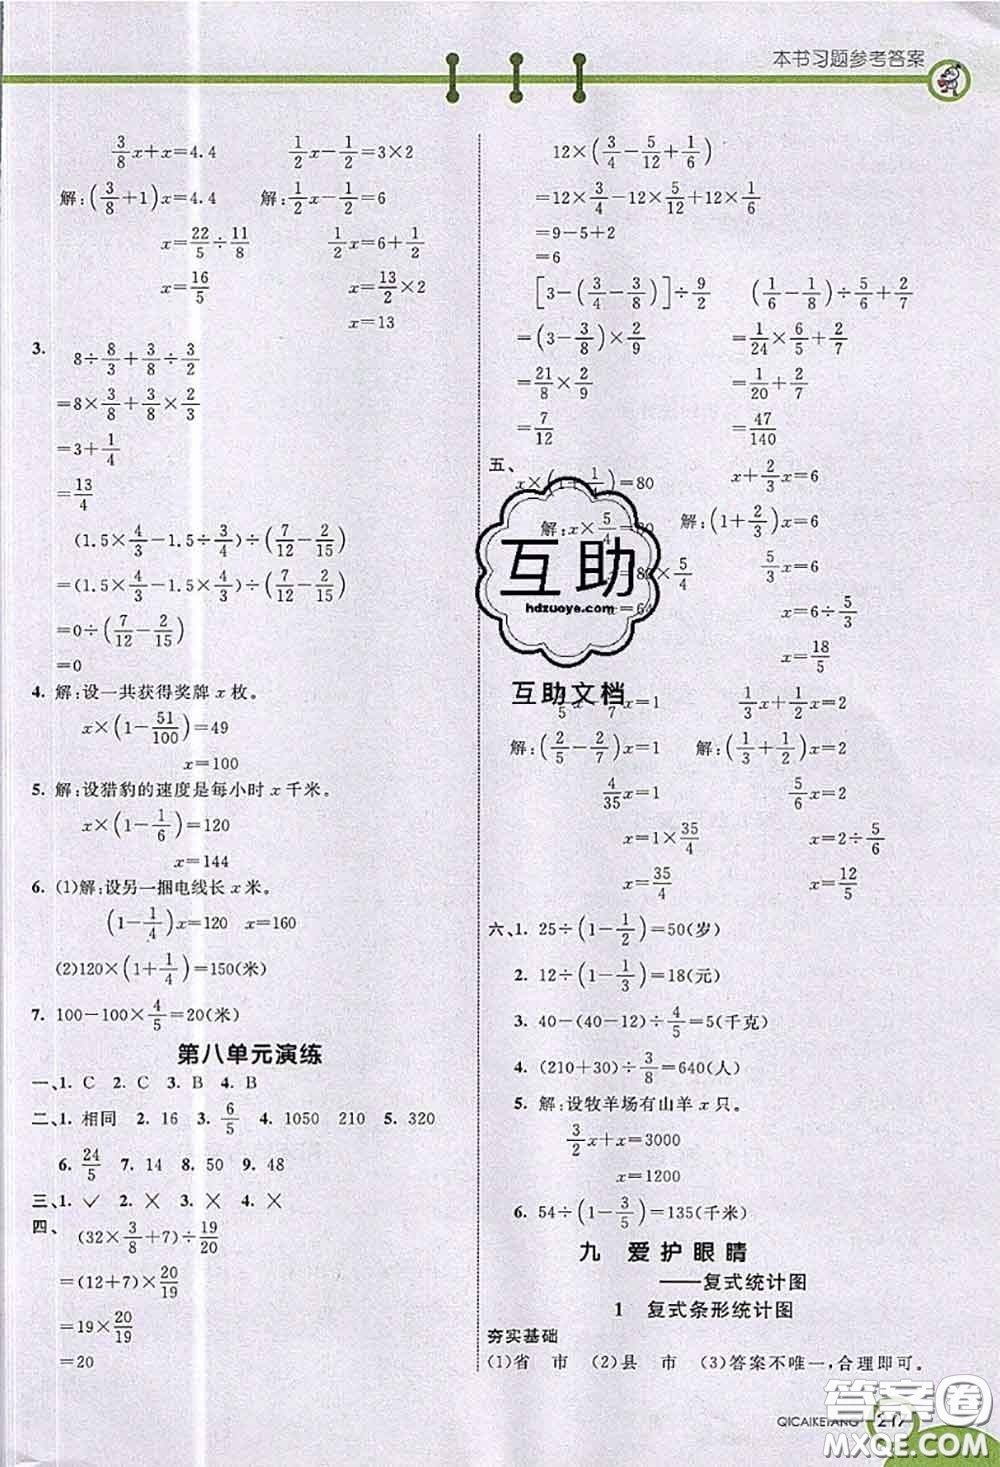 本书习题参考答案
3/8x+x=4.4  1/2x-1/2=3×2
解:(3/8+1)x=4.4  解:1/2x-1/2=6
x=22/5÷11/8  1/2x=6+1/2
x=16/5  x=13/2×2
x=13
3. 8÷8/3+3/8÷3/2
=8×3/8+3/8×2/3
=3+1/4
=13/4
(1.5×4/3-1.5÷3/4)÷(7/12-2/15)
=(1.5×4/3-1.5×4/3)÷(7/12-2/15)
=0÷(7/12-2/15)
=0
4. 解:设一共获得奖牌x枚。
x×(1-51/100)=49
x=100
5. 解:设猎豹的速度是每小时x千米。
x×(1-1/6)=120
x=144
6. (1)解:设另一捆电线长x米。
(1-1/4)x=120 x=160
(2)120×(1+1/4)=150(米)
7. 100-100×4/5=20(米)
第八单元演练
一、1. C 2. C 3. B 4. B
二、1. 相同 2. 16 3. 6/5 4. 1050 210 5. 320
6. 24/5 7. 14 8. 50 9. 48
三、1. ✓ 2. × 3. × 4. ×
四、
(32×3/8+7)÷19/20
=(12+7)×20/19
=19×20/19
=20
12×(3/4-5/12+1/6)
=12×3/4-12×5/12+12×1/6
=9-5+2
=6
[3-(3/4-3/8)]÷9/2  (1/6-1/8)÷5/6+2/7
=(3-3/8)×2/9  =1/24×6/5+2/7
=21/8×2/9  =1/20+2/7
=7/12  =47/140
五、
x×(1+1/4)=80  x+2/3x=6
解:x×5/4=80  解:(1+2/3)x=6
x=80×5/4  5/3x=6
x=64  x=6÷5/3
x=18/5
5x-7x=1  1/3x+1/2x=2
解:(2/5-2/7)x=1  解:(1/3+1/2)x=2
4/35x=1  5/6x=2
x=1×35/4  x=2÷5/6
x=35/4  x=12/5
六、1. 25÷(1-1/2)=50(岁)
2. 12÷(1-1/3)=18(元)
3. 40-(40-12)÷4/5=5(千克)
4. (210+30)÷3/8=640(人)
5. 解:设牧羊场有山羊x只。
3/2x+x=3000
x=1200
6. 54÷(1-3/5)=135(千米)
九 爱护眼睛
——复式统计图
1 复式条形统计图
夯实基础
(1)省 市 (2)县 市 (3)答案不唯一,合理即可。
QICAIKETANG 217
互助
hdzuoye.com
互助文档
答案圈
MXQE.COM